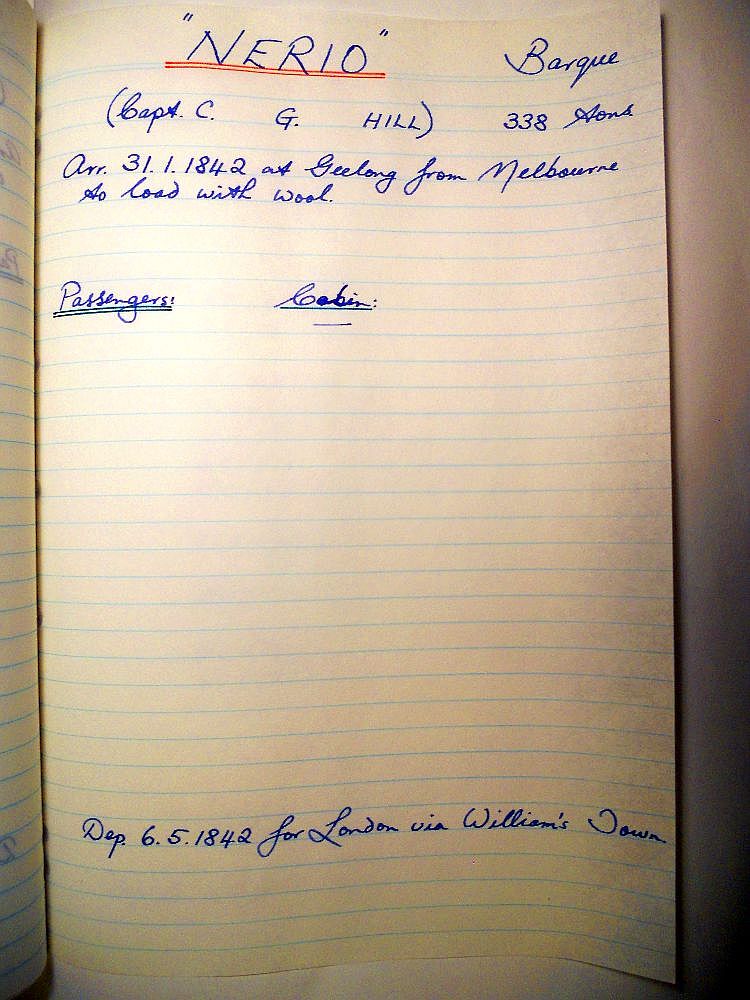 "NERIO" Barque
(Capt. C. G. HILL) 338 tons
Arr. 31.1.1842 at Geelong from Melbourne
to load with wool.
Passengers: Cabin:
—
Dep. 6.5.1842 for London via William's Town